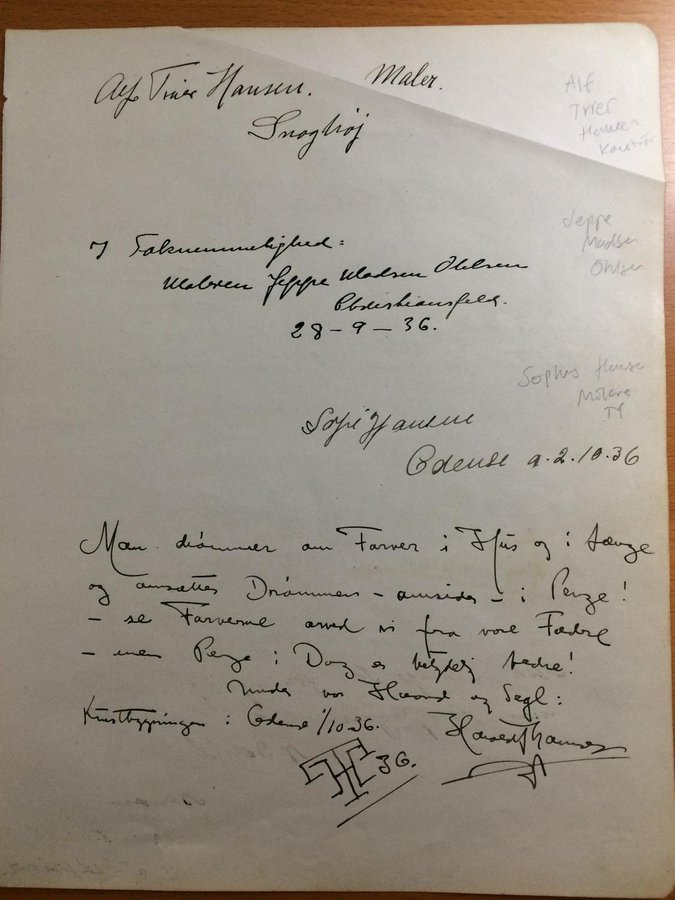 Alf Trier Hansen. Maler.
Snoghøj
Alf
Trier
Hansen
I Taknemmelighed:
Maleren Jeppe Madsen Ohlsen
Christiansfeld.
28-9-36.
Jeppe
Madsen
Ohlsen
Hansen
Odense d. 2.10.36
Man drømmer om Farver i Hus og i Længe
og omsættes Drømmen - omsider - i Penge!
- se Farverne arved vi fra vore Fædre
- men Penge i Dag er betydelig bedre!
Under vor Haand og Segl:
Kunstbygningen i Odense 1/10-36. Harald Hansen
36.